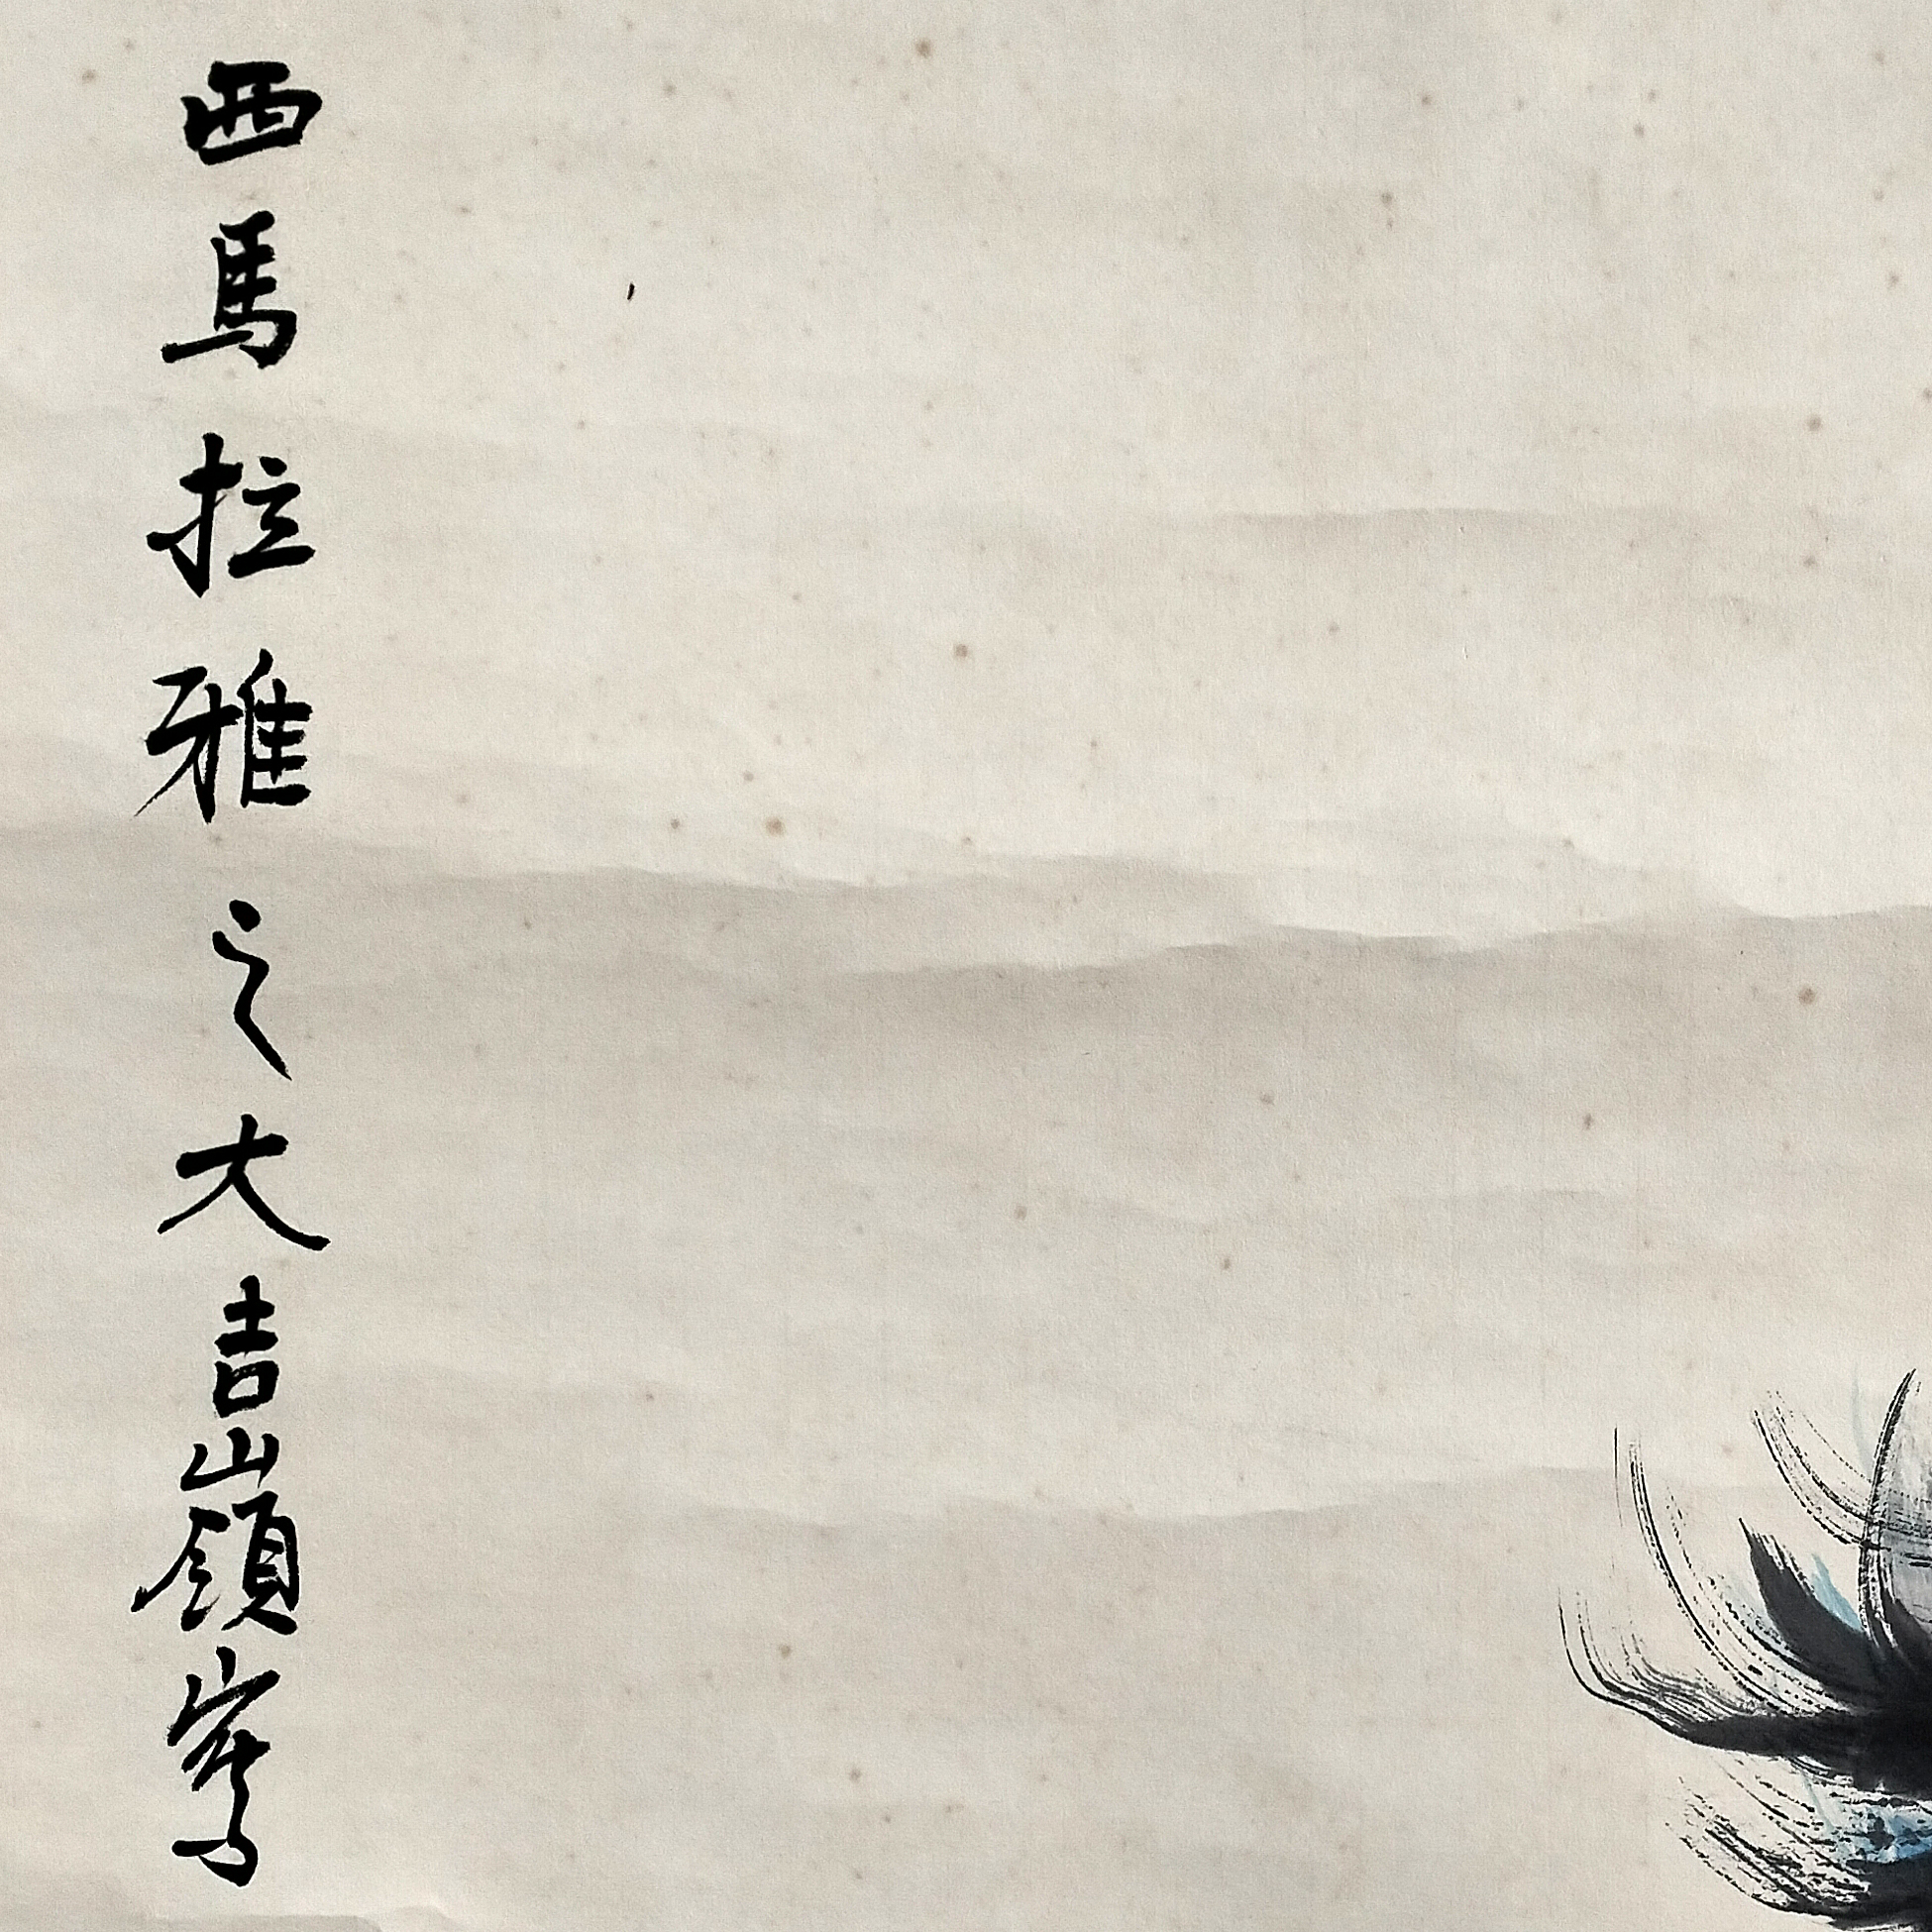 西馬拉雅之大吉嶺